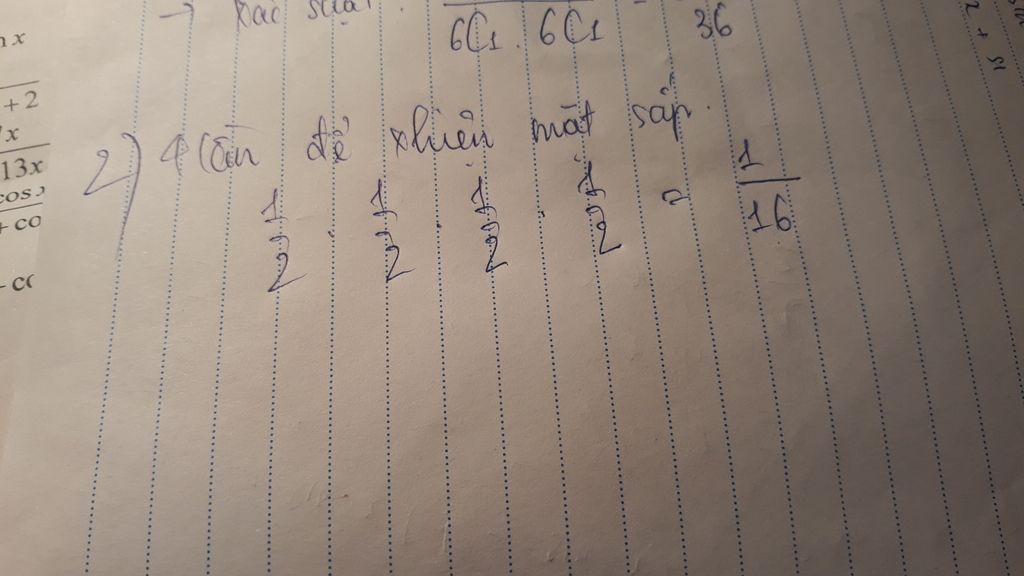 → xác suất :
6C1 . 6C1
36
2) 4 lần đề xhiện mặt sấp.
1/2 . 1/2 . 1/2 . 1/2 = 1/16
n x
+ 2
x
13x
cos
+ co
- co